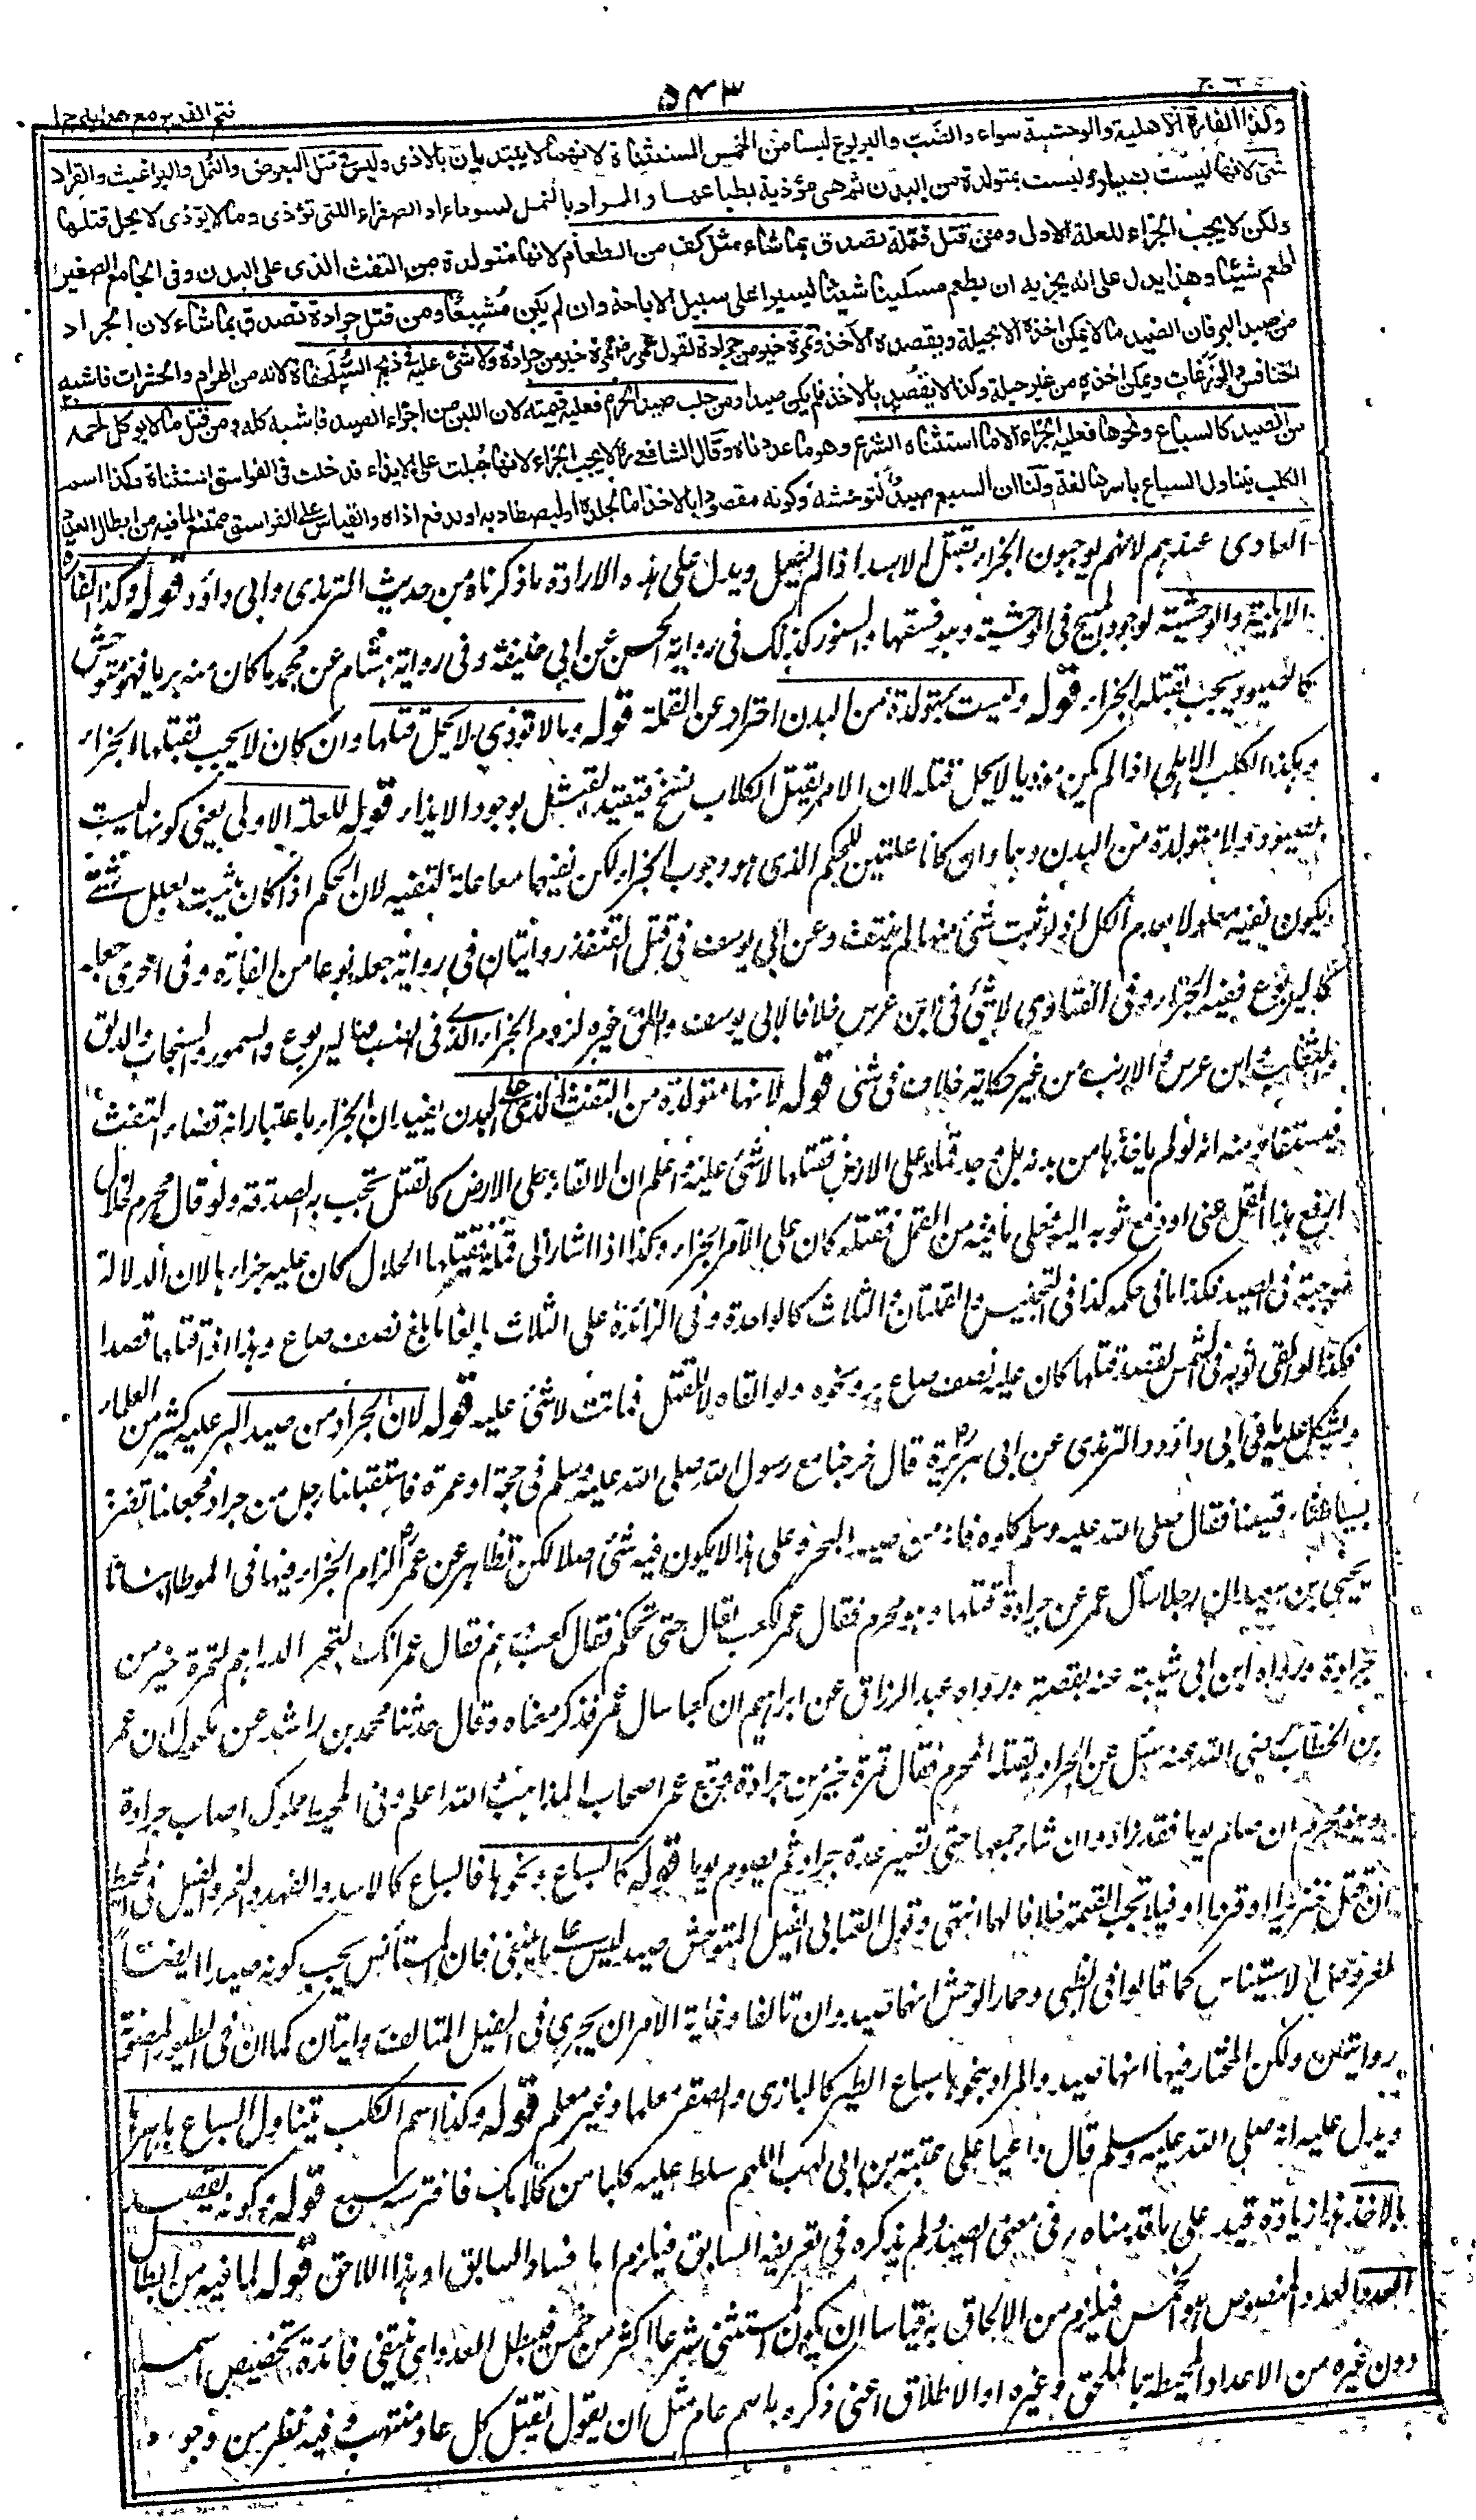 ٥٤٣
فتح القدير مع هداية ج ١
وكذا الفارة الاهلية والوحشية سواء والضب واليربوع ليسا من الخمس المستثناة لانهما لا يبتديان بالاذى وليس فى قتل البعوض والنمل والبراغيث والقراد
شئ لانها ليست بصيود وليست بمتولدة من البدن ثم هى مؤذية بطباعها والمراد بالنمل السوداء او الصفراء اللتى تؤذى وما لا يؤذى لا يحل قتلها
ولكن لا يجب الجزاء للعلة الاولى ومن قتل قملة تصدق بما شاء مثل كف من الطعام لانها متولدة من التفث الذى على البدن وفى الجامع الصغير
اطعم شيئا وهذا يدل على انه يجزيه ان يطعم مسكينا شيئا يسيرا على سبيل الاباحة وان لم يكن مشبعا ومن قتل جرادة تصدق بما شاء لان الجراد
من صيد البر فان الصيد ما لا يمكن اخذه الا بحيلة ويقصده الاخذ وتمرة خير من جرادة لقول عمر رض تمرة خير من جرادة ولا شئ عليه فى ذبح السلحفاة لانه من الهوام والحشرات فاشبه
الخنافس والوزغات ويمكن اخذه من غير حيلة وكذا لا يقصد بالاخذ فلم يكن صيدا ومن حلب صيد الحرم فعليه قيمته لان اللبن من اجزاء الصيد فاشبه كله ومن قتل ما لا يوكل لحمه
من الصيد كالسباع ونحوها فعليه الجزاء الا ما استثناه الشرع وهو ما عددناه وقال الشافعى رح لا يجب الجزاء لانها جبلت على الايذاء فدخلت فى الفواسق المستثناة وكذا اسم
الكلب يتناول السباع باسرها لغة ولنا ان السبع صيد لتوحشه وكونه مقصودا بالاخذ اما لجلده او ليصطاد به او لدفع اذاه والقياس على الفواسق ممتنع لما فيه من ابطال العدد
العادى عندهم لانهم يوجبون الجزاء بقتل الاسد اذا لم يصل ويدل على هذه الارادة ما ذكرناه من حديث الترمذى وابى داؤد قوله وكذا الفارة
الاهلية والوحشية لوجود المبيح فى الوحشية وهو فسقها والسنور كذلك فى رواية الحسن عن ابى حنيفة وفى رواية هشام عن محمد ما كان منه بريا فهو متوحش
كالصيود يجب بقتله الجزاء قوله وليست بمتولدة من البدن احتراز عن القملة قوله وما لا توذى لا يحل قتلها وان كان لا يجب بقتلها الجزاء
وهكذا الكلب الاهلى اذا لم يكن موذيا لا يحل قتله لان الامر بقتل الكلاب نسخ فتقيد القتل بوجود الايذاء قوله للعلة الاولى يعنى كونها ليست
بصيود ولا متولدة من البدن وهما وان كانا علتين للحكم الذى هو وجوب الجزاء لكن نفيهما معا علة لنفيه لان الحكم اذا كان يثبت بعلل شتى
يكون نفيه معلولا بعدم الكل اذ لو ثبت شئ منها لم ينتف وعن ابى يوسف فى قتل القنفذ روايتان فى رواية جعله نوعا من الفارة وفى اخرى جعله
كاليربوع ففيه الجزاء وفى الفتاوى لا شئ فى ابن عرس خلافا لابى يوسف واطلق غيره لزوم الجزاء الذى فى الضب واليربوع والسمور والسنجاب والدلق
والثعلب وابن عرس والارنب من غير حكاية خلاف فى شئ قوله لانها متولدة من التفث الذى على البدن يفيد ان الجزاء باعتبار انه قضاء التفث
فيستفاد منه انه لو لم ياخذها من بدنه بل وجد قملة على الارض فقتلها لا شئ عليه واعلم ان الالقاء على الارض كالقتل تجب به الصدقة ولو قال محرم لحلال
ارفع هذا القمل عنى او دفع ثوبه اليه ففلى ما فيه من القمل فقتله كان على الآمر الجزاء وكذا اذا اشار الى قملة فقتلها الحلال كان عليه جزاؤها لان الدلالة
موجبة فى الصيد فكذا ما فى حكمه كذا فى التجنيس والقملتان والثلاث كالواحدة وفى الزائدة على الثلاث بالغا ما بلغ نصف صاع وهذا اذا قتلها قصدا
فكذا لو القى ثوبه فى الشمس لقصد قتلها كان عليه نصف صاع بر ونحوه ولو القاه لا للقتل فماتت لا شئ عليه قوله لان الجراد من صيد البر عليه كثير من العلماء
ويشكل عليه ما فى ابى داؤد والترمذى عن ابى هريرة قال خرجنا مع رسول الله صلى الله عليه وسلم فى حجة او عمرة فاستقبلنا رجل من جراد فجعلنا نضربه
بسياطنا وقسينا فقال صلى الله عليه وسلم كلوه فانه من صيد البحر وعلى هذا لا يكون فيه شئ اصلا لكن تظاهر عن عمر الزام الجزاء فيها فى الموطا انبانا
يحيى بن سعيد ان رجلا سأل عمر عن جرادة قتلها وهو محرم فقال عمر لكعب تعال حتى نحكم فقال كعب درهم فقال عمر انك لتجد الدراهم لتمرة خير من
جرادة ورواه ابن ابى شيبة عنه بقصته ورواه عبد الرزاق عن ابراهيم ان كعبا سال عمر فذكر معناه وقال حدثنا محمد بن راشد عن مكحول ان عمر
بن الخطاب رضى الله عنه سئل عن الجراد يقتله المحرم فقال تمرة خير من جرادة وتبع عمر اصحاب المذاهب والله اعلم وفى المحيط مملوك اصاب جرادة
وهو محرم ان صام يوما فقد زاد وان شاء جمعها حتى تصير عدة جراد ثم يصوم يوما قوله كالسباع ونحوها فالسباع كالاسد والفهد والنمر والفيل فى المحيط
ان قتل خنزيرا او قردا او فيلا تجب القيمة خلافا لهما انتهى وقول العتابى الفيل المتوحش صيد ليس كما ينبغى فان المستأنس يجب كونه صيدا ايضا
لعروض الاستيناس كما قالوا فى الظبى وحمار الوحش انهما صيد وان تالفا وغاية الامر ان يجرى فى الفيل المتالف روايتان كما ان فى الطيور المصوتة
روايتين ولكن المختار فيها انها صيد والمراد بنحوها سباع الطير كالبازى والصقر معلما وغير معلم قوله وكذا اسم الكلب يتناول السباع باسرها
ويدل عليه انه صلى الله عليه وسلم قال داعيا على عتبة بن ابى لهب اللهم سلط عليه كلبا من كلابك فافترسه سبع قوله وكونه يقصد
بالاخذ هذا زيادة قيد على ما قدمناه فى معنى الصيد ولم يذكره فى تعريفه السابق فيلزم اما فساد السابق او هذا اللاحق قوله لما فيه من ابطال
العدد العدد المنصوص هو الخمس فيلزم من الالحاق به قياسا ان يكون المستثنى شرعا اكثر من خمس فيبطل العدد اى ينتفى فائدة تخصيص اسمه
دون غيره من الاعداد المحيطة بالملحق وغيره او الاطلاق اعنى ذكره باسم عام مثل ان يقول يقتل كل عاد منتهب وفيه نظر من وجوه